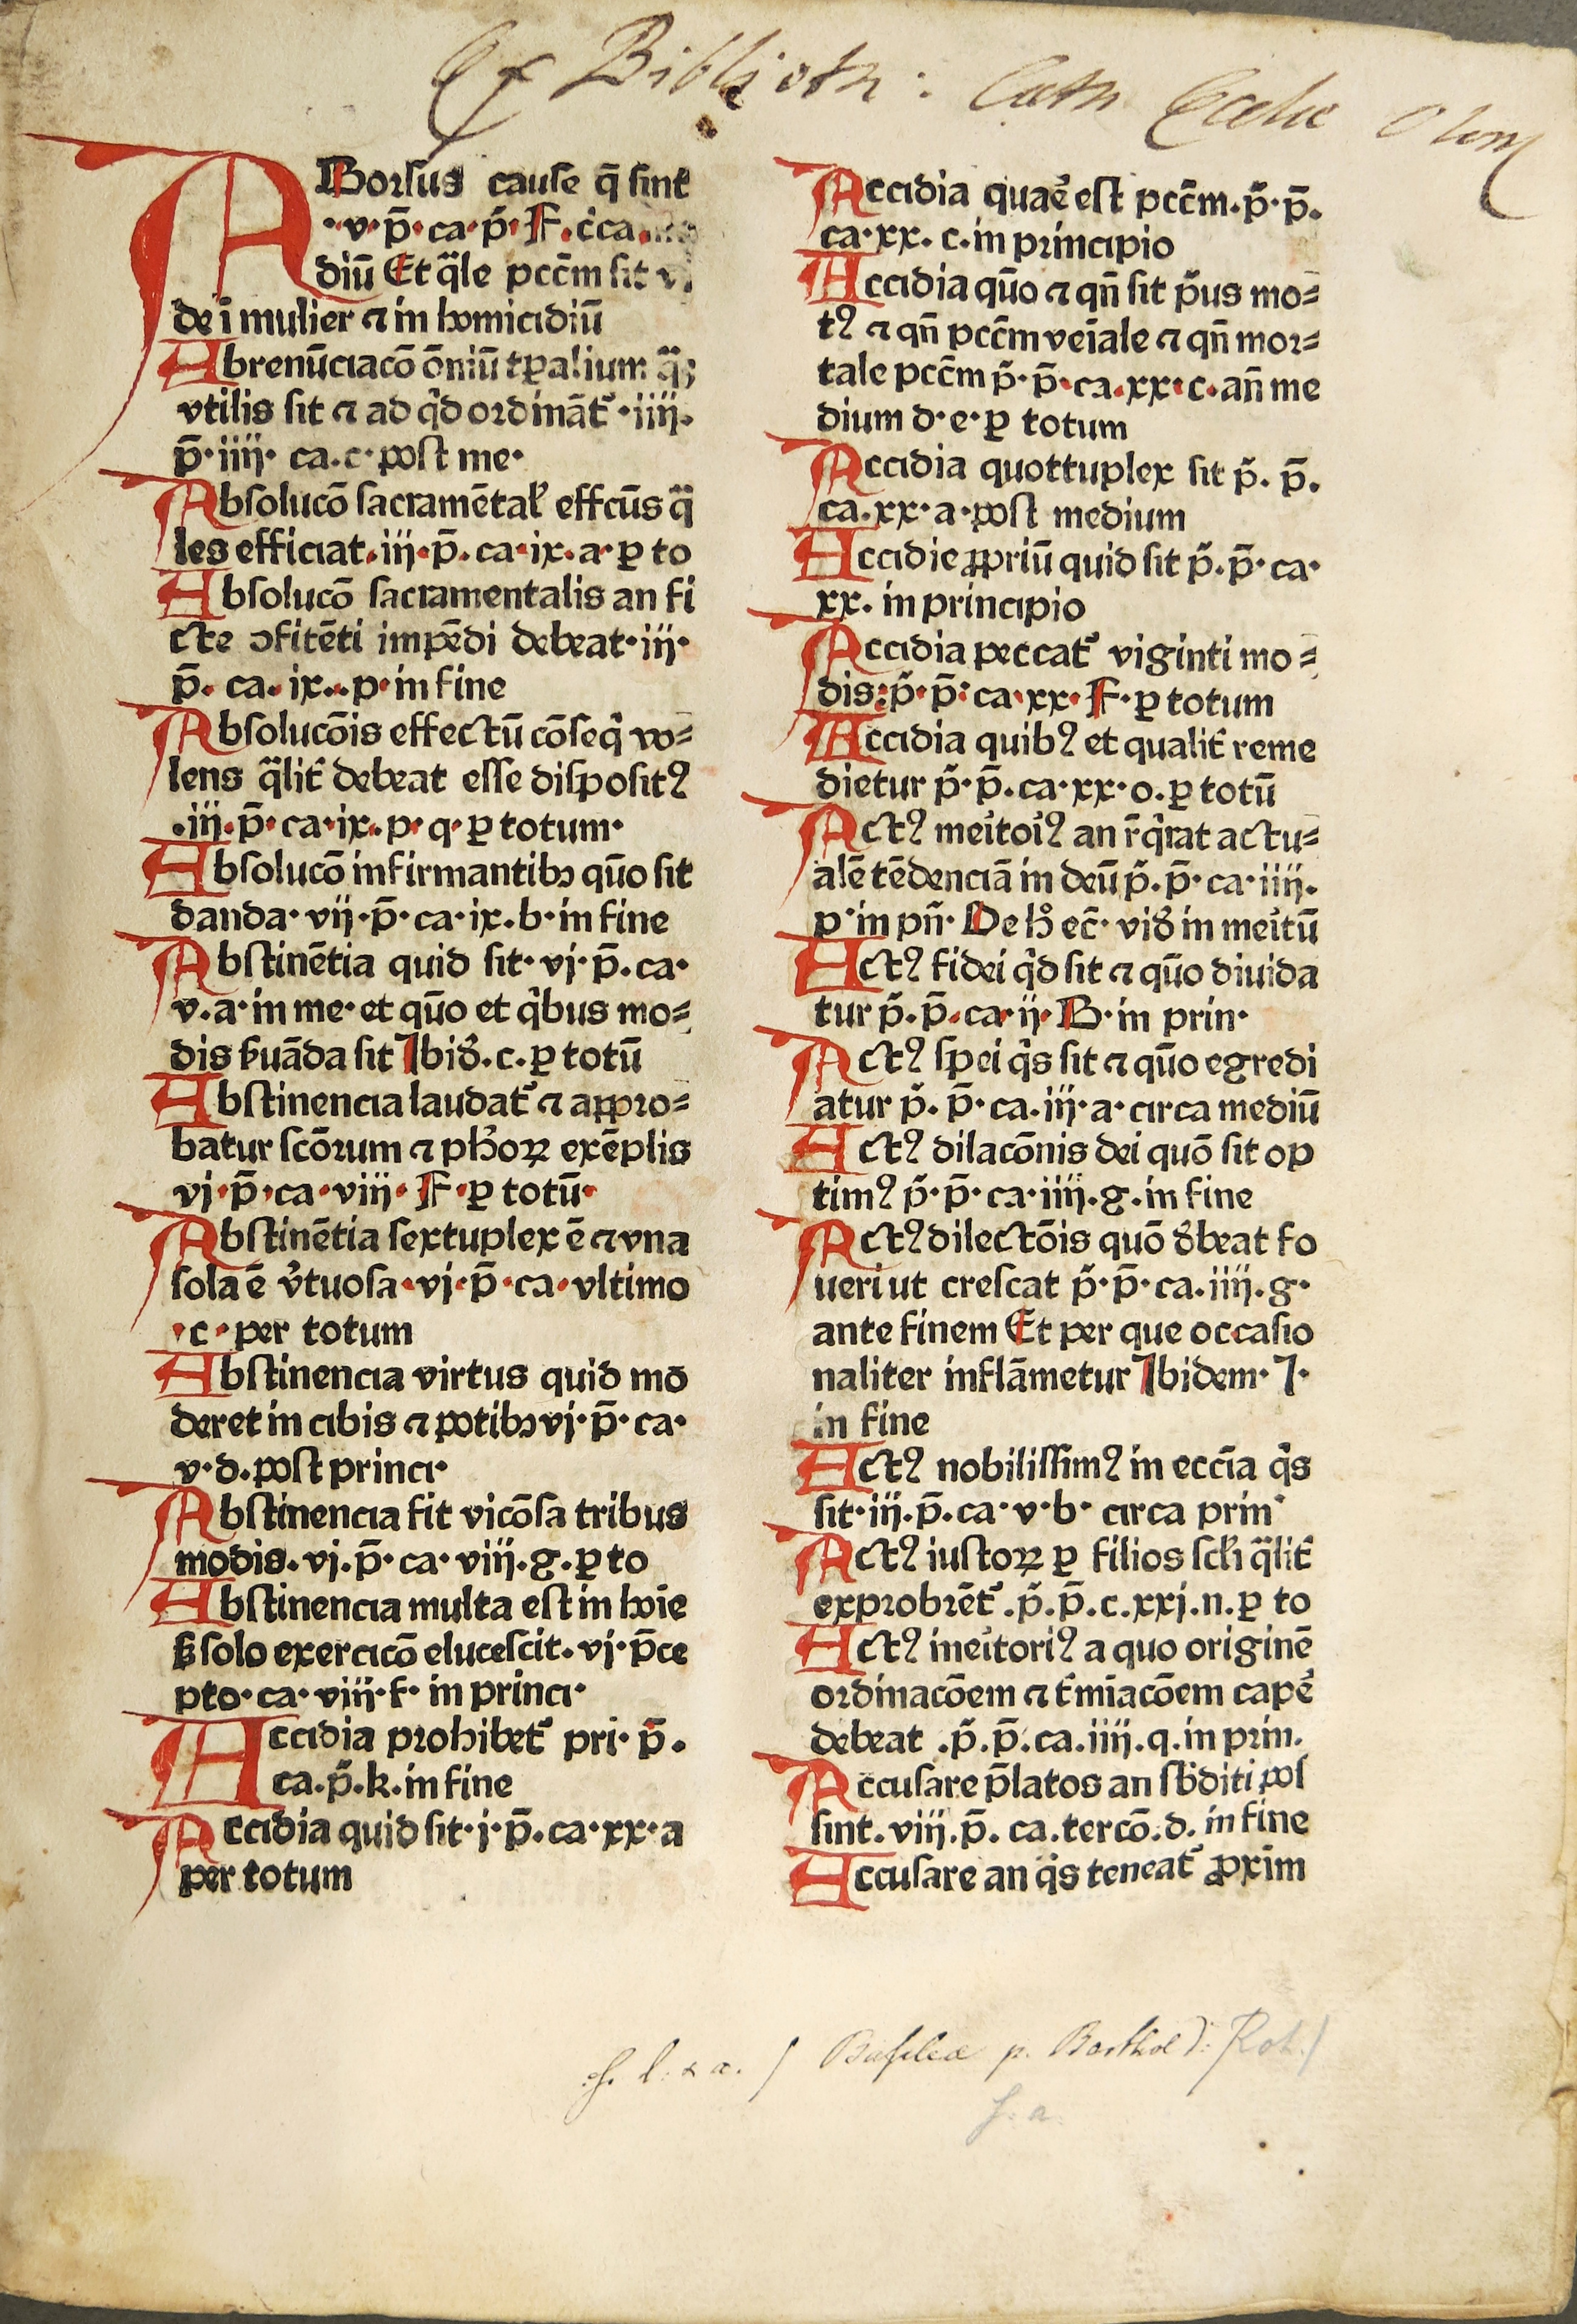 Ex Biblioth: Cath Eccliæ Olom
ABorsus cause q̄ sint
·v·p̄·ca·p̄·F·c̄ca
diū Et q̄le pccm̄ sit
de ī mulier ⁊ in homicidiū
Abrenūciacō ōniū tꝑalium
vtilis sit ⁊ ad qͥd ordināt᷑·iiij·
p̄·iiij· ca·c·post me·
Absolucō sacramētal᷑ effcūs q̄
les efficiat·iij·p̄·ca·ix·a·ꝑ to
Absolucō sacramentalis an fi
cte ɔfitēti impēdi debeat·iij·
p̄· ca· ix·p·in fine
Absolucōis effectū cōseqͥ vo⸗
lens q̄lit᷑ debeat esse disposit⁹
·iij·p̄·ca·ix·p·q·ꝑ totum·
Absolucō infirmantibꝫ quō sit
danda·vij·p̄·ca·ix·b·in fine
Abstinētia quid sit·vj·p̄·ca·
v·a·in me·et quō et qͥbus mo⸗
dis ẜuāda sit Ibid᷑·c·ꝑ totū
Abstinencia laudat᷑ ⁊ appro⸗
batur scōrum ⁊ ph᷑oꝝ exēplis
vj·p̄·ca·viij·F·ꝑ totū·
Abstinētia sextuplex ē ⁊ vna
sola ē v᷑tuosa·vj·p̄·ca·vltimo
·c·per totum
Abstinencia virtus quid mo
deret in cibis ⁊ potibꝫ vj·p̄·ca·
v·d·post princi·
Abstinencia fit vicōsa tribus
modis·vj·p̄·ca·viij·g·ꝑ to
Abstinencia multa est in hoīe
ẜ solo exercicō elucescit·vj·p̄ce
pto·ca·viij·f·in princi·
Accidia prohibet᷑ pri·p̄·
ca·p̄·k·in fine
Accidia quid sit·j·p̄·ca·xx·a
per totum
Accidia quae᷑ est pccm̄·p̄·p̄·
ca·xx·c·in principio
Accidia quō ⁊ qn̄ sit p̄us mo⸗
t⁹ ⁊ qn̄ pccm̄ veīale ⁊ qn̄ mor⸗
tale pccm̄ p̄·p̄·ca·xx·c·an̄ me
dium d·e·ꝑ totum
Accidia quottuplex sit p̄·p̄·
ca·xx·a·post medium
Accidie ꝓpriū quid sit p̄·p̄·ca·
xx·in principio
Accidia peccat᷑ viginti mo⸗
dis:p̄·p̄·ca·xx·F·ꝑ totum
Accidia quib⁹ et qualit᷑ reme
dietur p̄·p̄·ca·xx·o·ꝑ totū
Act⁹ meͥtoͥ⁹ an r̄qͥrat actu⸗
alē tēdenciā in deū p̄·p̄·ca·iiij·
p·in pn̄· De h° ec̄·vid᷑ in meͥtū
Act⁹ fidei qͥd sit ⁊ quō diuida
tur p̄·p̄·ca·ij·B·in prin·
Act⁹ spei qͥs sit ⁊ quō egredi
atur p̄·p̄·ca·iij·a·circa mediū
Act⁹ dilacōnis dei quō sit op
tim⁹ p̄·p̄·ca·iiij·g·in fine
Act⁹ dilectōis quō d᷑beat fo
ueri ut crescat p̄·p̄·ca·iiij·g·
ante finem Et per que occasio
naliter inflāmetur Ibidem·I·
in fine
Act⁹ nobilissim⁹ in eccīa qͥs
sit·iij·p̄·ca·v·b·circa prin·
Act⁹ iustoꝝ ꝑ filios scl᷑i q̄lit᷑
exprobrēt᷑·p̄·p̄·c·xxj·n·ꝑ to
Act⁹ meͥtori⁹ a quo originē
ordinacōem ⁊ t᷑mīacōem cape᷑
debeat·p̄·p̄·ca·iiij·q·in prin·
Accusare p̄latos an sb᷑diti pos
sint·viij·p̄·ca·tercō·d·in fine
Accusare an qͥs teneat᷑ ꝓxim
S. l. & a. / Basileæ p. Barthol d: Rot. /
S. a.